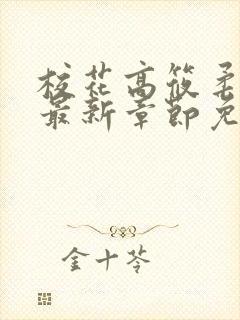 校花高筱柔
最新章节免
金十苓